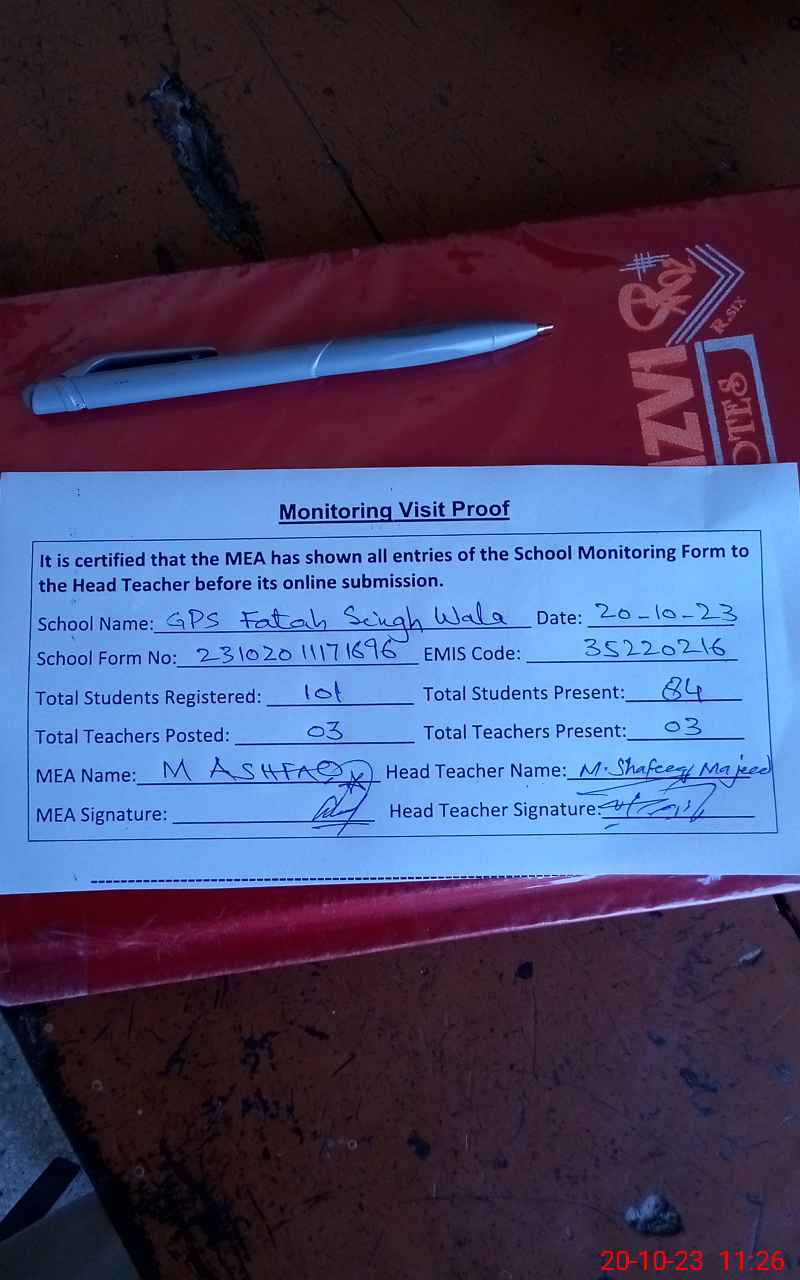 R.SIX
NOTES
Monitoring Visit Proof
It is certified that the MEA has shown all entries of the School Monitoring Form to
the Head Teacher before its online submission.
School Name: GPS Fatah Singh Wala Date: 20-10-23
School Form No: 23102011171696 EMIS Code: 35220216
Total Students Registered: 101 Total Students Present: 84
Total Teachers Posted: 03 Total Teachers Present: 03
MEA Name: M ASHFAQ Head Teacher Name: M. Shafeeq Majeed
MEA Signature: Head Teacher Signature:
20-10-23 11:26